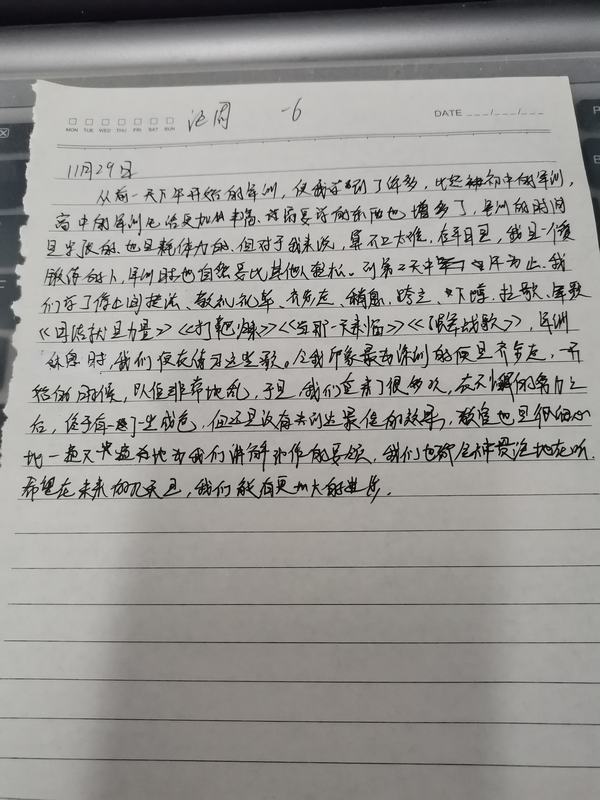 MON TUE WED THU FRI SAT SUN
DATE ___/___/___
-6
11月29日
从前一天下午开始的军训,使我学到了许多,比起初中的军训,
高中的军训生活更加丰富,所需要学的东西也增多了,军训的时间
是紧张的,也是耗体力的,但对于我来说,算不上太难,在平日里,我是一个
的人,军训时也自然要比其他人轻松。到第二天中午为止,我
们学了停止间转法、敬礼礼毕、齐步走、稍息、跨立、蹲下、拉歌、军歌
《团结就是力量》《打靶归来》《当那一天来临》《强军战歌》,军训
休息时,我们便在练习这些歌。令我印象最为深刻的便是齐步走,开
始的时候,队伍非常地乱,于是,我们重来了很多次,在不懈的努力之
后,终于有了一些成色,但还是没有达到最佳的效果,教官也是很细心
地一遍又一遍地为我们讲解动作的要领,我们也都全神贯注地在听。
希望在未来的几天里,我们能有更加大的进步。